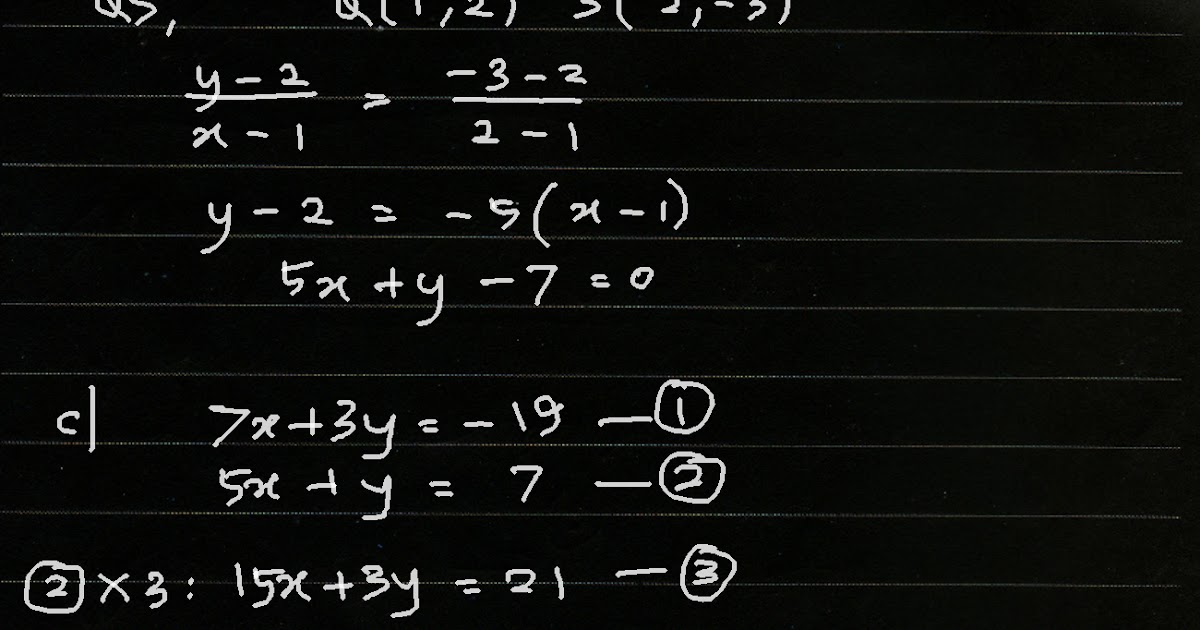 QS, Q(1,2) S(2,-3)
y-2 / x-1 = -3-2 / 2-1
y-2 = -5(x-1)
5x+y-7=0
c) 7x+3y=-19 —①
5x+y= 7 —②
②×3: 15x+3y=21 —③